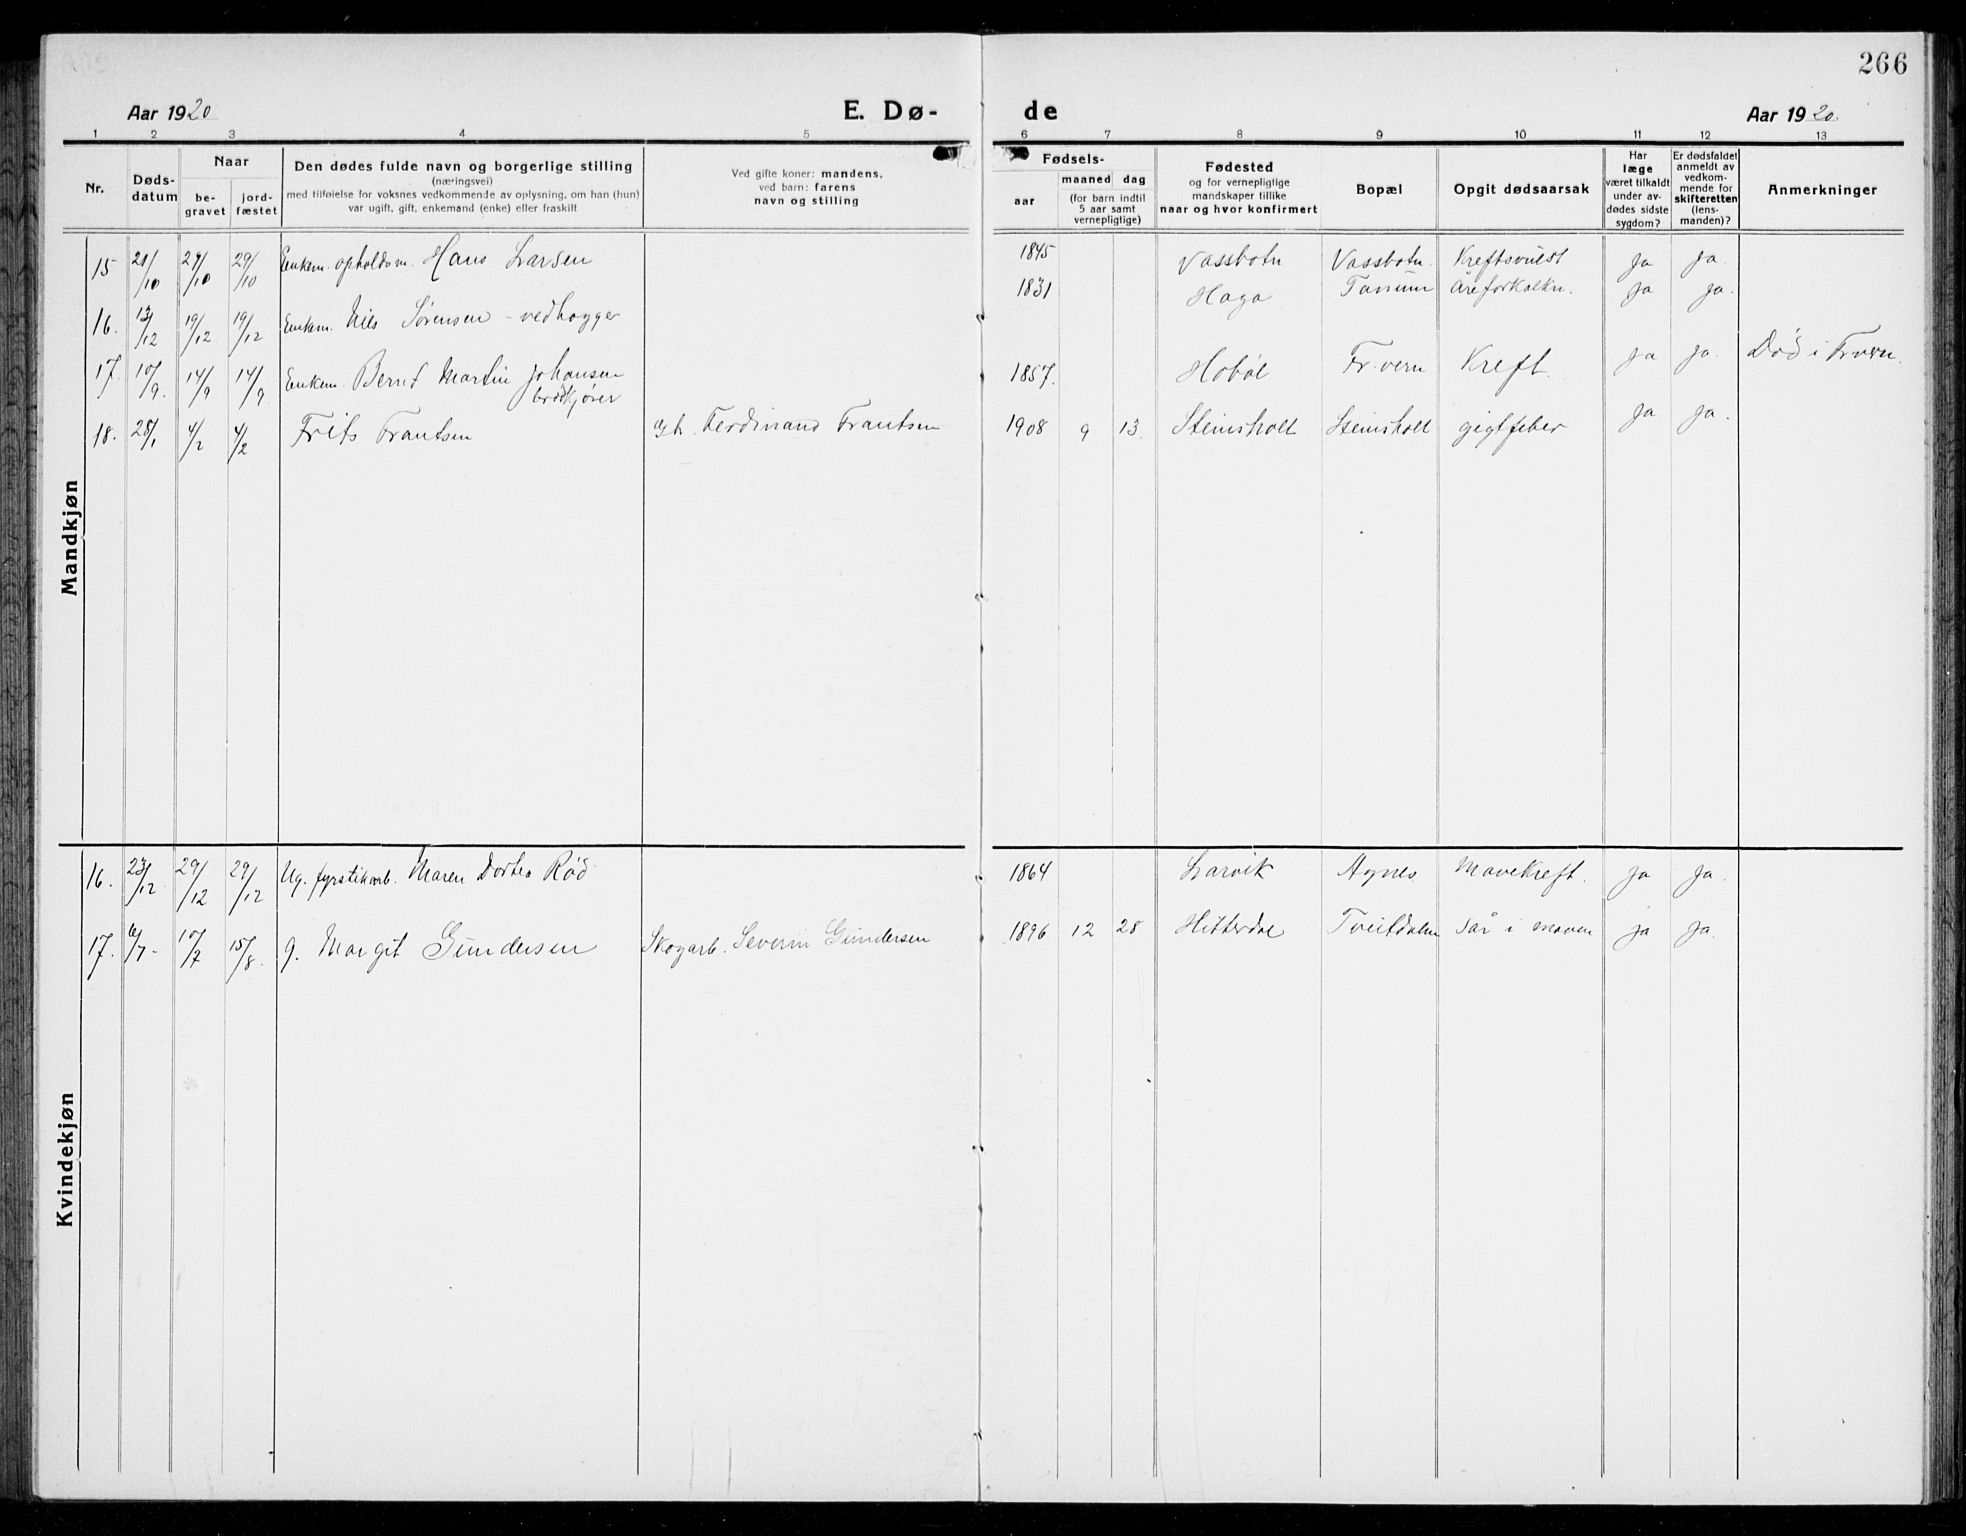 266
Aar 1920
E. Dø-
de
Aar 1920.
1 2 3 4 5 6 7 8 9 10 11 12 13
Nr.
Døds-
datum
Naar
be-
gravet
jord-
fæstet
Den dødes fulde navn og borgerlige stilling
(næringsvei)
med tilføielse for voksnes vedkommende av oplysning, om han (hun)
var ugift, gift, enkemand (enke) eller fraskilt
Ved gifte koner: mandens,
ved barn: farens
navn og stilling
Fødsels-
aar
maaned dag
(for barn indtil
5 aar samt
vernepligtige)
Fødested
og for vernepligtige
mandskaper tillike
naar og hvor konfirmert
Bopæl
Opgit dødsaarsak
Har
læge
været tilkaldt
under av-
dødes sidste
sygdom?
Er dødsfaldet
anmeldt av
vedkom-
mende for
skifteretten
(lens-
manden)?
Anmerkninger
Mandkjøn
15 21/10 29/10 29/10 Enkem. opholdsm. Hans Larsen 1845 Vassbotn Vassbotn. Kreftsvulst ja ja.
16. 13/12 19/12 19/12 Enkem. Nils Sørensen - vedhogger 1831 Haga Tanum Åreforkalkn. ja ja.
17. 10/9. 14/9 14/9. Enkem. Bernt Martin Johansen 1857. Hobøl Fr.vern Kreft. ja ja. Død i Fr.vern.
brødkjører
18. 28/1 4/2 4/2 Frits Frantsen Ferdinand Frantsen 1908 9 13. Steinsholt Steinsholt gigtfeber ja ja.
Kvindekjøn
16. 23/12 29/12 29/12 Ug. fyrstikarb. Maren Dortea Rød 1864 Larvik Agnes Mavekreft. ja ja.
17. 6/7- 10/7 15/8. g. Margit Gundersen Skogarb. Severin Gundersen 1896 12 28 Hitterdal Tveitdalen sår i maven ja ja.